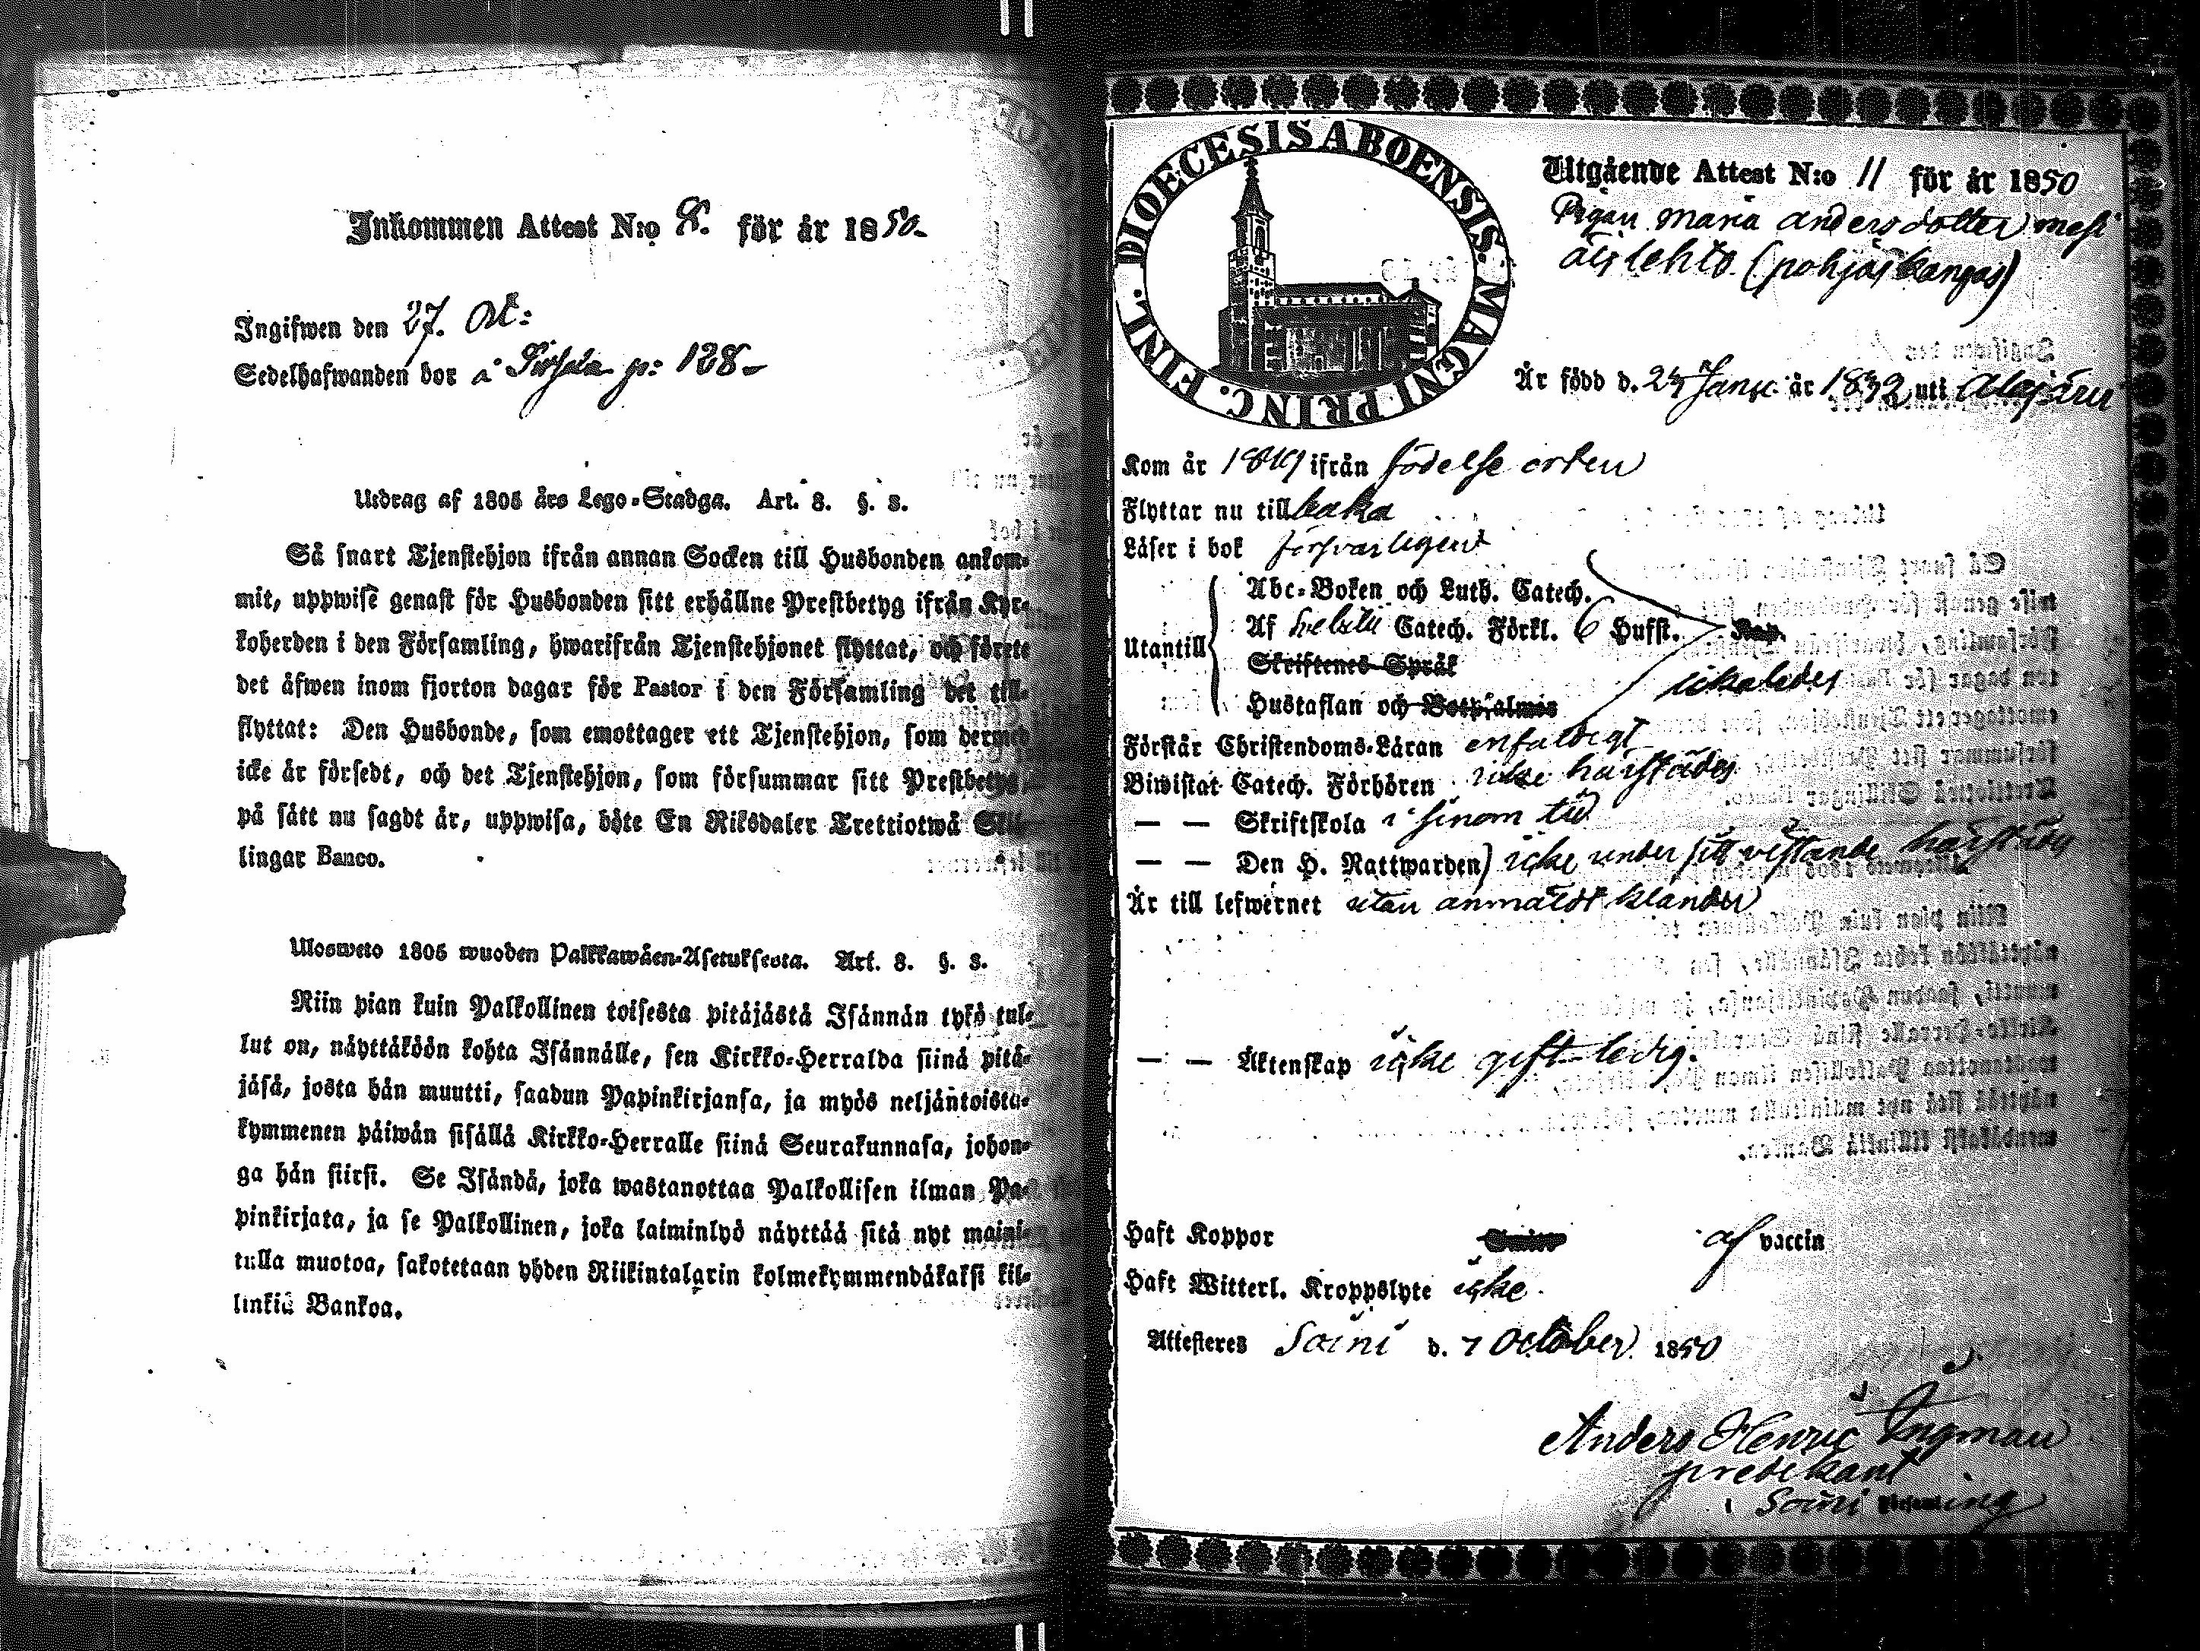 Inkommen Attest N:o 8. för år 1850.
Ingifwen den 27. Okt:
Sedelhafwanden bor å p: 128
Utdrag af 1805 års Lego-Stadga. Art. 8. §. 8.
Så snart Tjenstehjon ifrån annan Socken till Husbonden ankom-
mit, uppwise genast för Husbonden sitt erhållne Prestbetyg ifrån Kyr-
koherden i den Församling, hwarifrån Tjenstehjonet flyttat, och förete
det äfwen inom fjorton dagar för Pastor i den Församling det till-
flyttat: Den Husbonde, som emottager ett Tjenstehjon, som dermed
icke är försedt, och det Tjenstehjon, som försummar sitt Prestbetyg,
på sätt nu sagdt är, uppwisa, böte En Riksdaler Trettiotwå Skil-
lingar Banco.
Ulosweto 1805 wuoden Palkkawäen-Asetuksesta. Art. 8. §. 8.
Niin pian kuin Palkollinen toisesta pitäjästä Isännän tykö tul-
lut on, näyttäköön kohta Isännälle, sen Kirkko-Herralda siinä pitä-
jäsä, josta hän muutti, saadun Papinkirjansa, ja myös neljäntoista-
kymmenen päiwän sisällä Kirkko-Herralle siinä Seurakunnasa, johon-
ga hän siirsi. Se Isändä, joka wastanottaa Palkollisen ilman Pa-
pinkirjata, ja se Palkollinen, joka laiminlyö näyttää sitä nyt maini-
tulla muotoa, sakotetaan yhden Riikintalarin kolmekymmendäkaksi kil-
linkiä Bankoa.
DIOECESIS ABOENSIS. MAGNI PRINC. FINL.
Utgående Attest N:o 11 för år 1850
Pigan maria andersdotter mesi
äislehto (pohjaskangas)
Är född d. Janu: år 1832 uti Alajärvi
Kom år 1849 ifrån födelse orten
Flyttar nu till baka
Läser i bok försvarligent
Utantill
Abc-Boken och Luth. Catech.
Af Svebilii Catech. Förkl. 6 Hufst.
Skriftenes Språk
ickaledes
Hustaflan och Botpsalmer
Förstår Christendoms-Läran enfaldigt
Biwistat Catech. Förhören icke härstädes
— — Skriftskola i sinom tid
— — Den H. Nattwarden) icke under sitt vistande härstädes
Är till lefwernet utan anmäldt klander
— — Äktenskap icke gift-ledig.
Haft Koppor af vaccin
Haft Witterl. Kroppslyte icke.
Attesteres Soini d. 7 October 1850
Anders Henric Ingman
predikant
i Soini